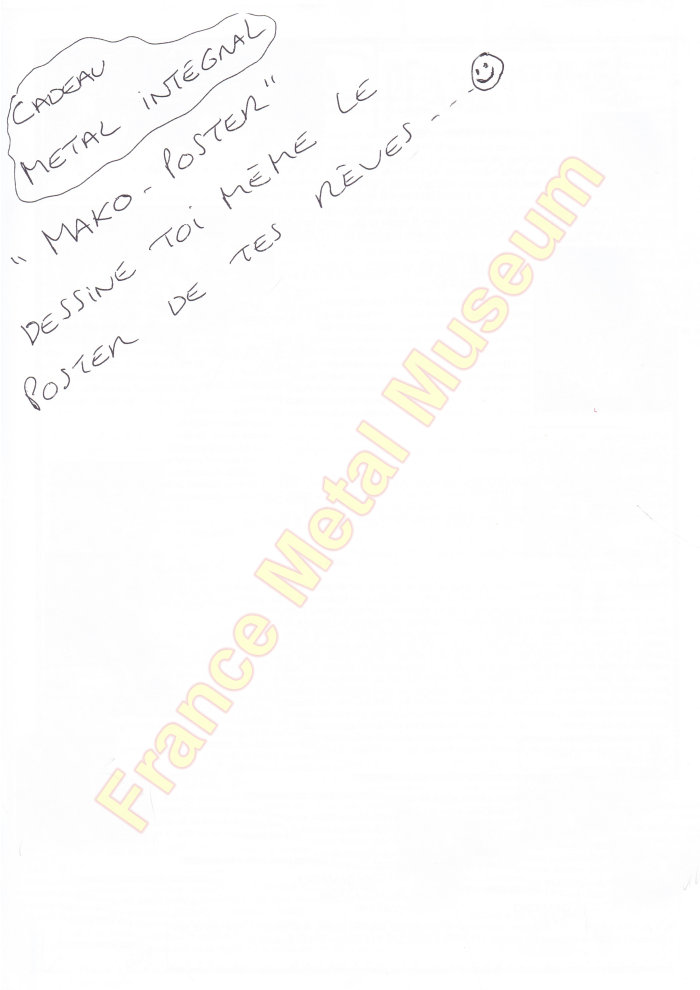 CADEAU
METAL INTEGRAL
"MAKO-POSTER"
DESSINE TOI MÊME LE
POSTER DE TES RÊVES---
France Metal Museum